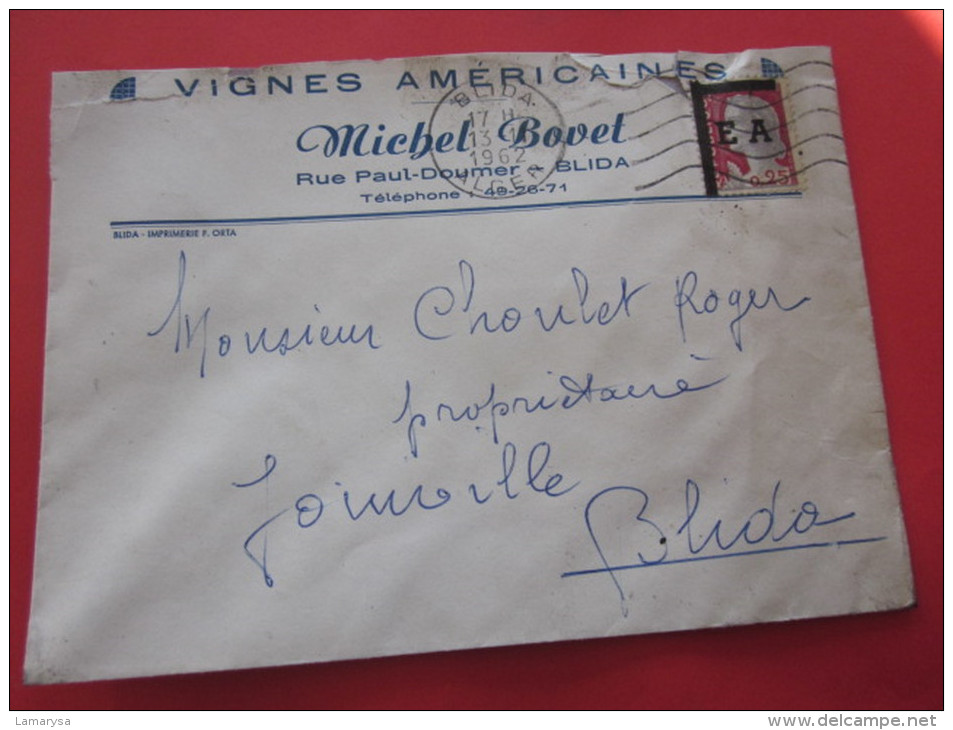 VIGNES AMÉRICAINES
Michel Bovet
Rue Paul-Doumer - BLIDA
Téléphone : 49-26-71
BLIDA - IMPRIMERIE P. ORTA
BLIDA
17 H
13
1962
ALGER
E A
0,25
Monsieur Choulet Roger
propriétaire
Joinville
Blida
Lamarysa
www.delcampe.net